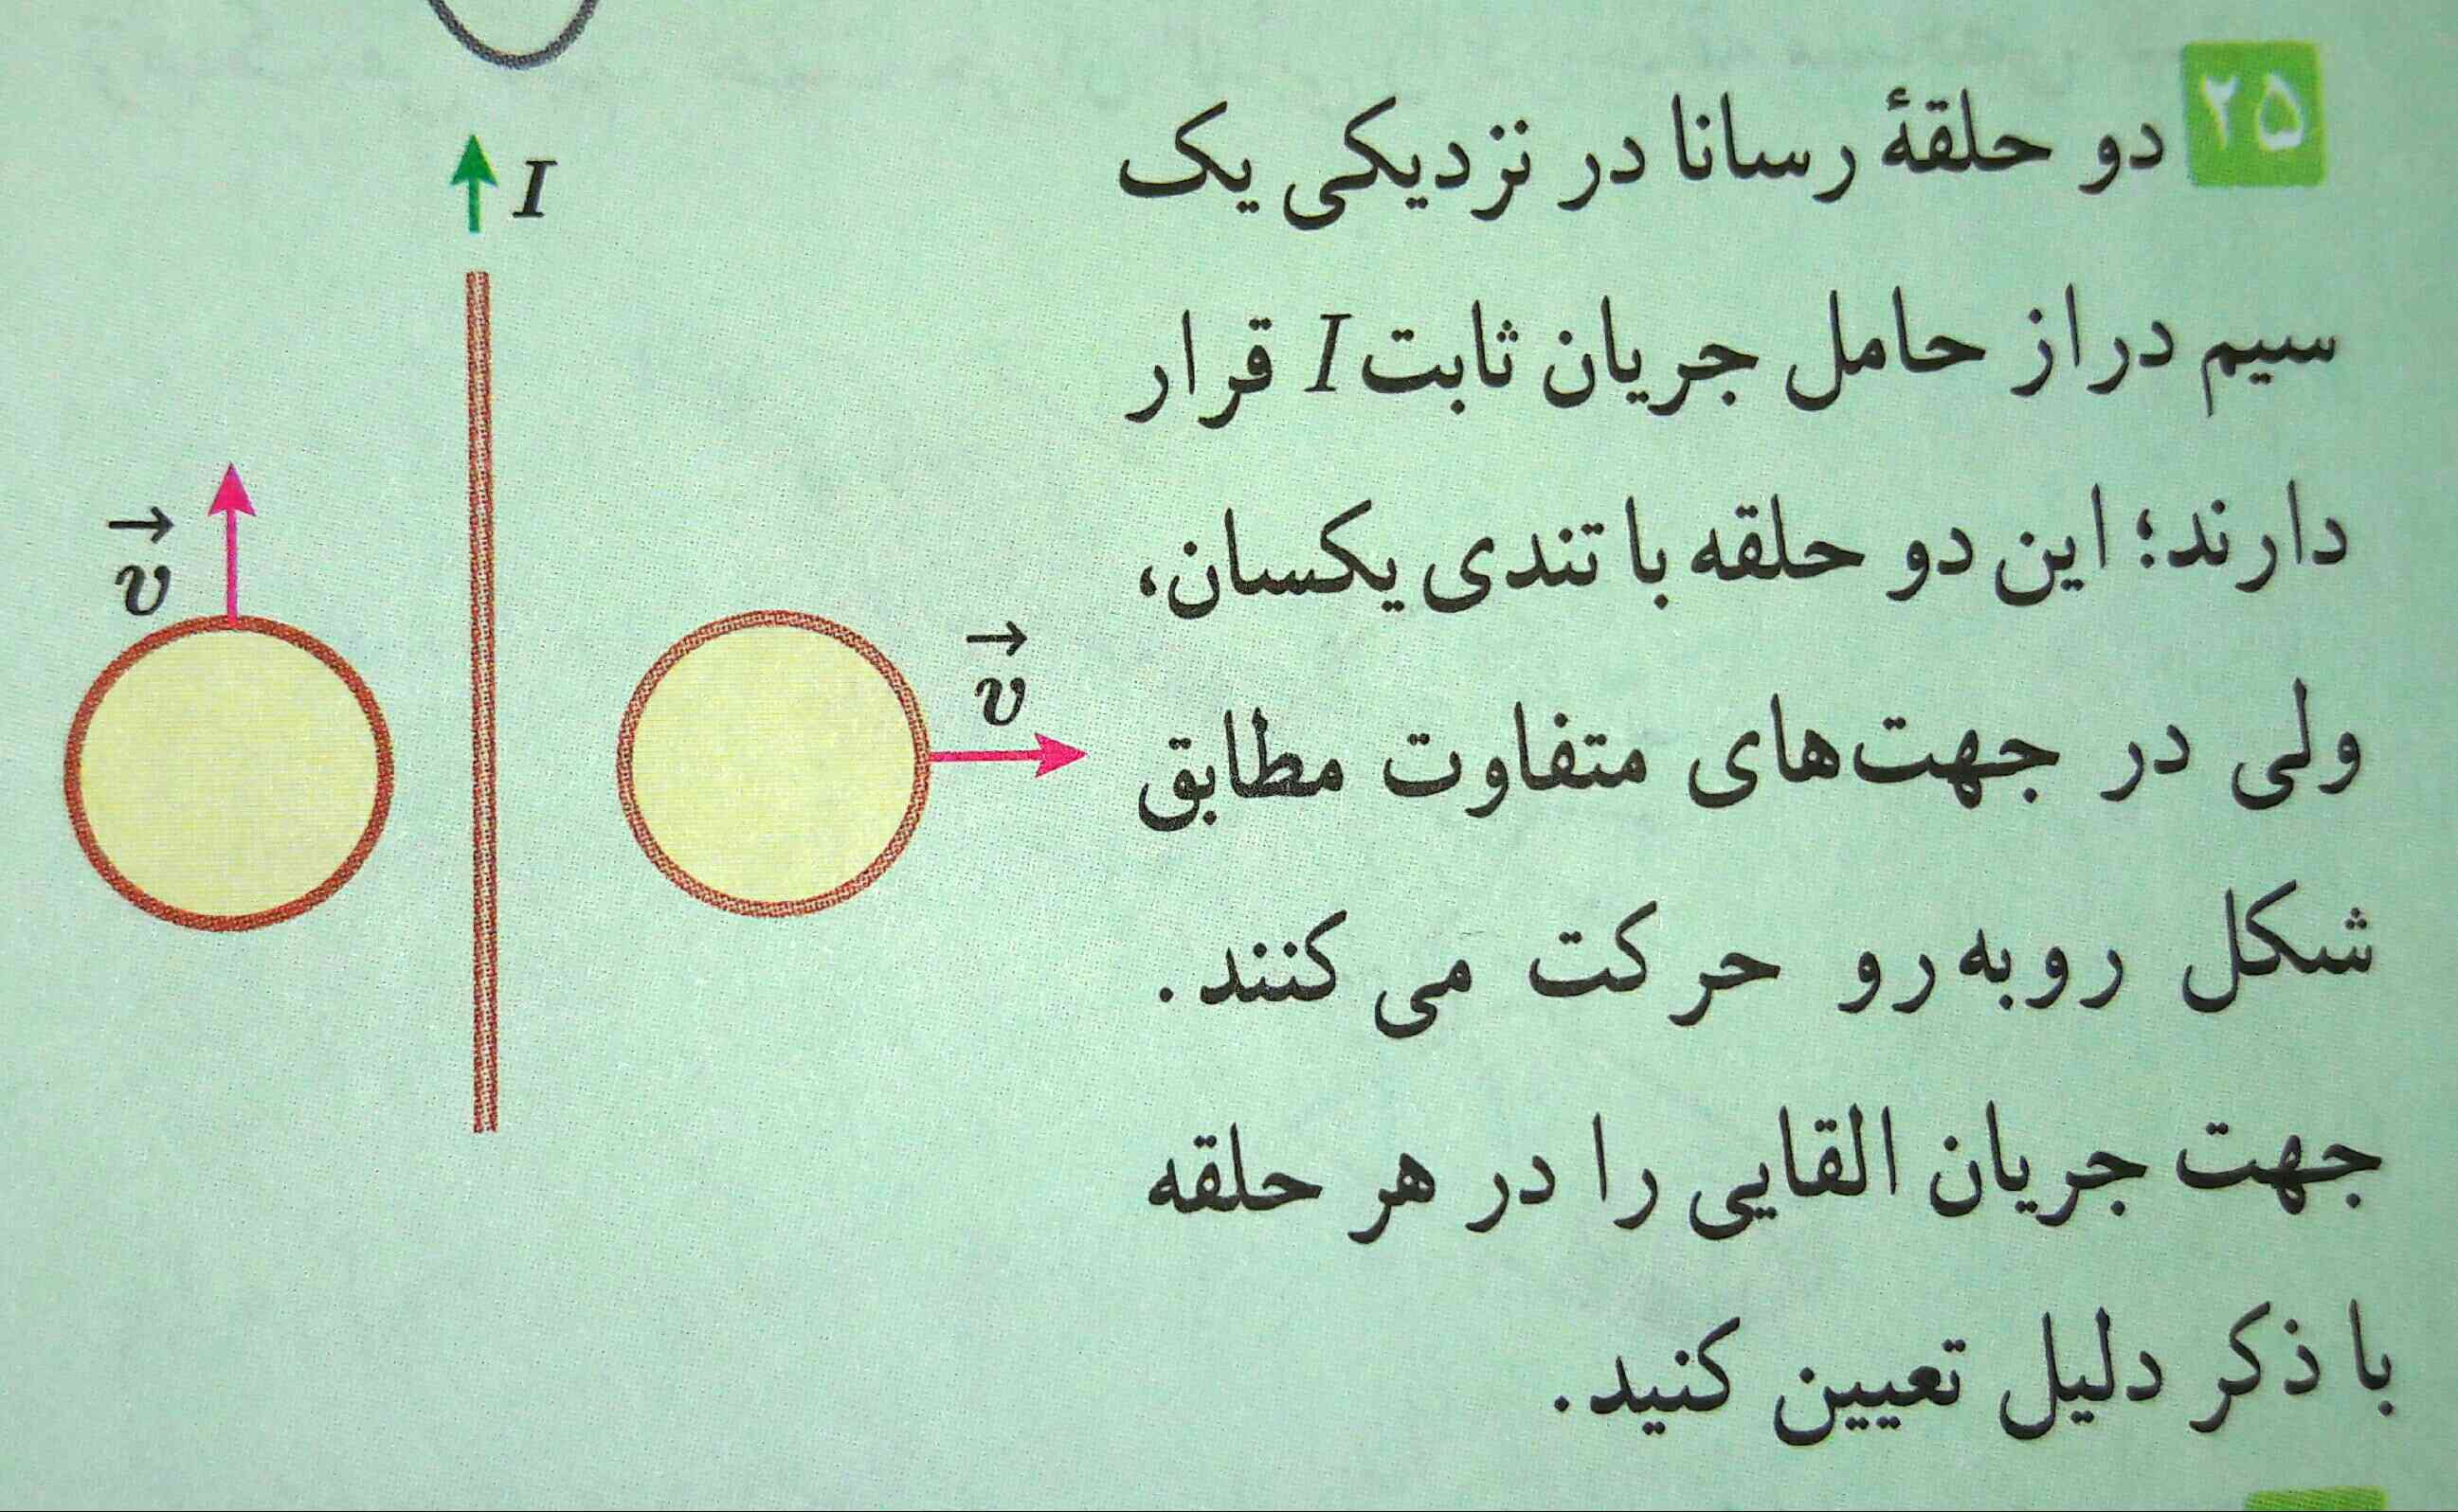 ۲۵ دو حلقهٔ رسانا در نزدیکی یک
سیم دراز حامل جریان ثابت I قرار
دارند؛ این دو حلقه با تندی یکسان،
ولی در جهت‌های متفاوت مطابق
شکل روبه‌رو حرکت می‌کنند.
جهت جریان القایی را در هر حلقه
با ذکر دلیل تعیین کنید.
I
v⃗
v⃗